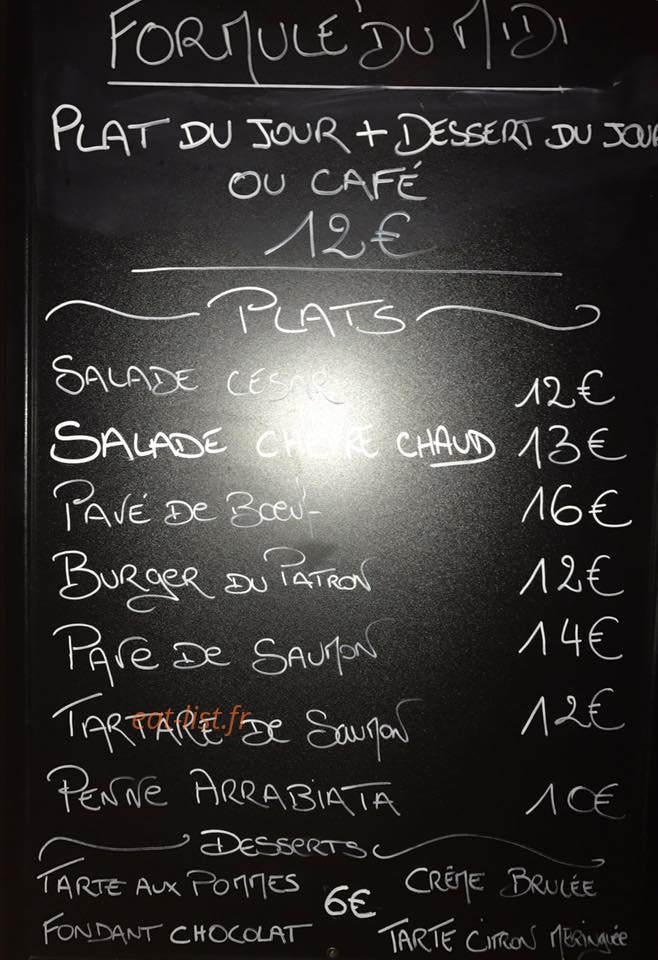 FORMULE DU MIDI
PLAT DU JOUR + DESSERT DU JOUR
OU CAFÉ
12€
PLATS
SALADE CÉSAR 12€
SALADE CHÈVRE CHAUD 13€
PAVÉ DE BŒUF 16€
BURGER DU PATRON 12€
PAVE DE SAUMON 14€
TARTARE DE SAUMON 12€
eat-list.fr
PENNE ARRABIATA 10€
DESSERTS
TARTE AUX POMMES CRÈME BRULÉE
6€
FONDANT CHOCOLAT TARTE CITRON MERINGUÉE